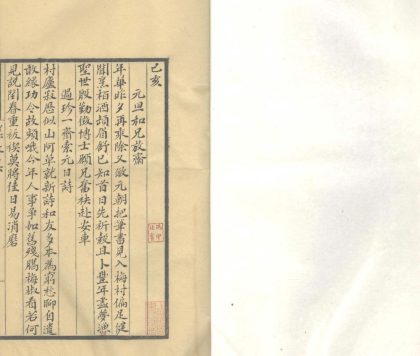 己亥
元旦和兄放齋
年華昨夕再乘除又做元朝把筆書見入梅村偏足健
閣烹栢酒頡眉舒已知首日先祈穀且卜豐年盡夢漁
聖世殷勤徵博士願兄奮袂赴安車
過珍一齋索元日詩
村廬寂居似山阿草就新詩和友多本為窮愁聊自遣
敢緣功令故頻哦今年人事爭如舊殘臘梅椒看若何
見說閏春重祓禊莫將佳日易消磨